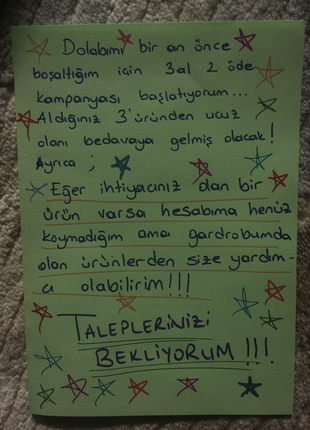 Dolabımı bir an önce
boşaltığım için 3al 2 öde
kampanyası başlatıyorum...
Aldığınız 3 üründen ucuz
olanı bedavaya gelmiş olacak!
Ayrıca ;
Eğer ihtiyacınız olan bir
ürün varsa hesabıma henüz
koymadığım ama gardrobumda
olan ürünlerden size yardım-
cı olabilirim!!!
TALEPLERİNİZİ
BEKLİYORUM !!!